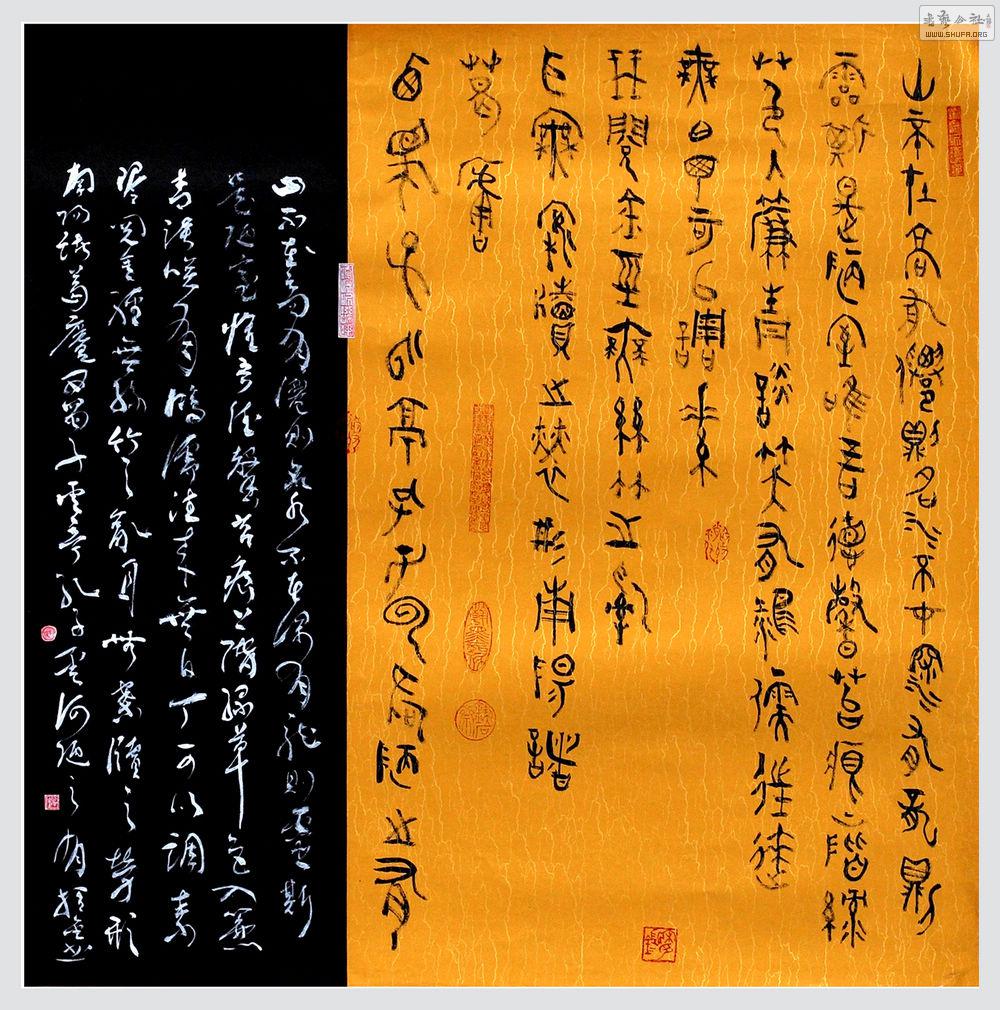 書藝公社
WWW.SHUFA.ORG
山不在高有僊則名水不在深有龍則
靈斯是陋室唯吾德馨苔痕上階綠
艸色入簾青談笑有鴻儒往來
無白丁可以調素
琴閱金經無絲竹之亂
耳無案牘之勞形南陽諸
葛廬
西蜀子雲亭孔子曰何陋之有
山不在高有僊則名水不在深有龍則靈斯
是陋室惟吾德馨苔痕上階綠草色入簾
青談笑有鴻儒往來無白丁可以調素
琴閱金經無絲竹之亂耳無案牘之勞形
南陽諸葛廬西蜀子雲亭孔子云何陋之有